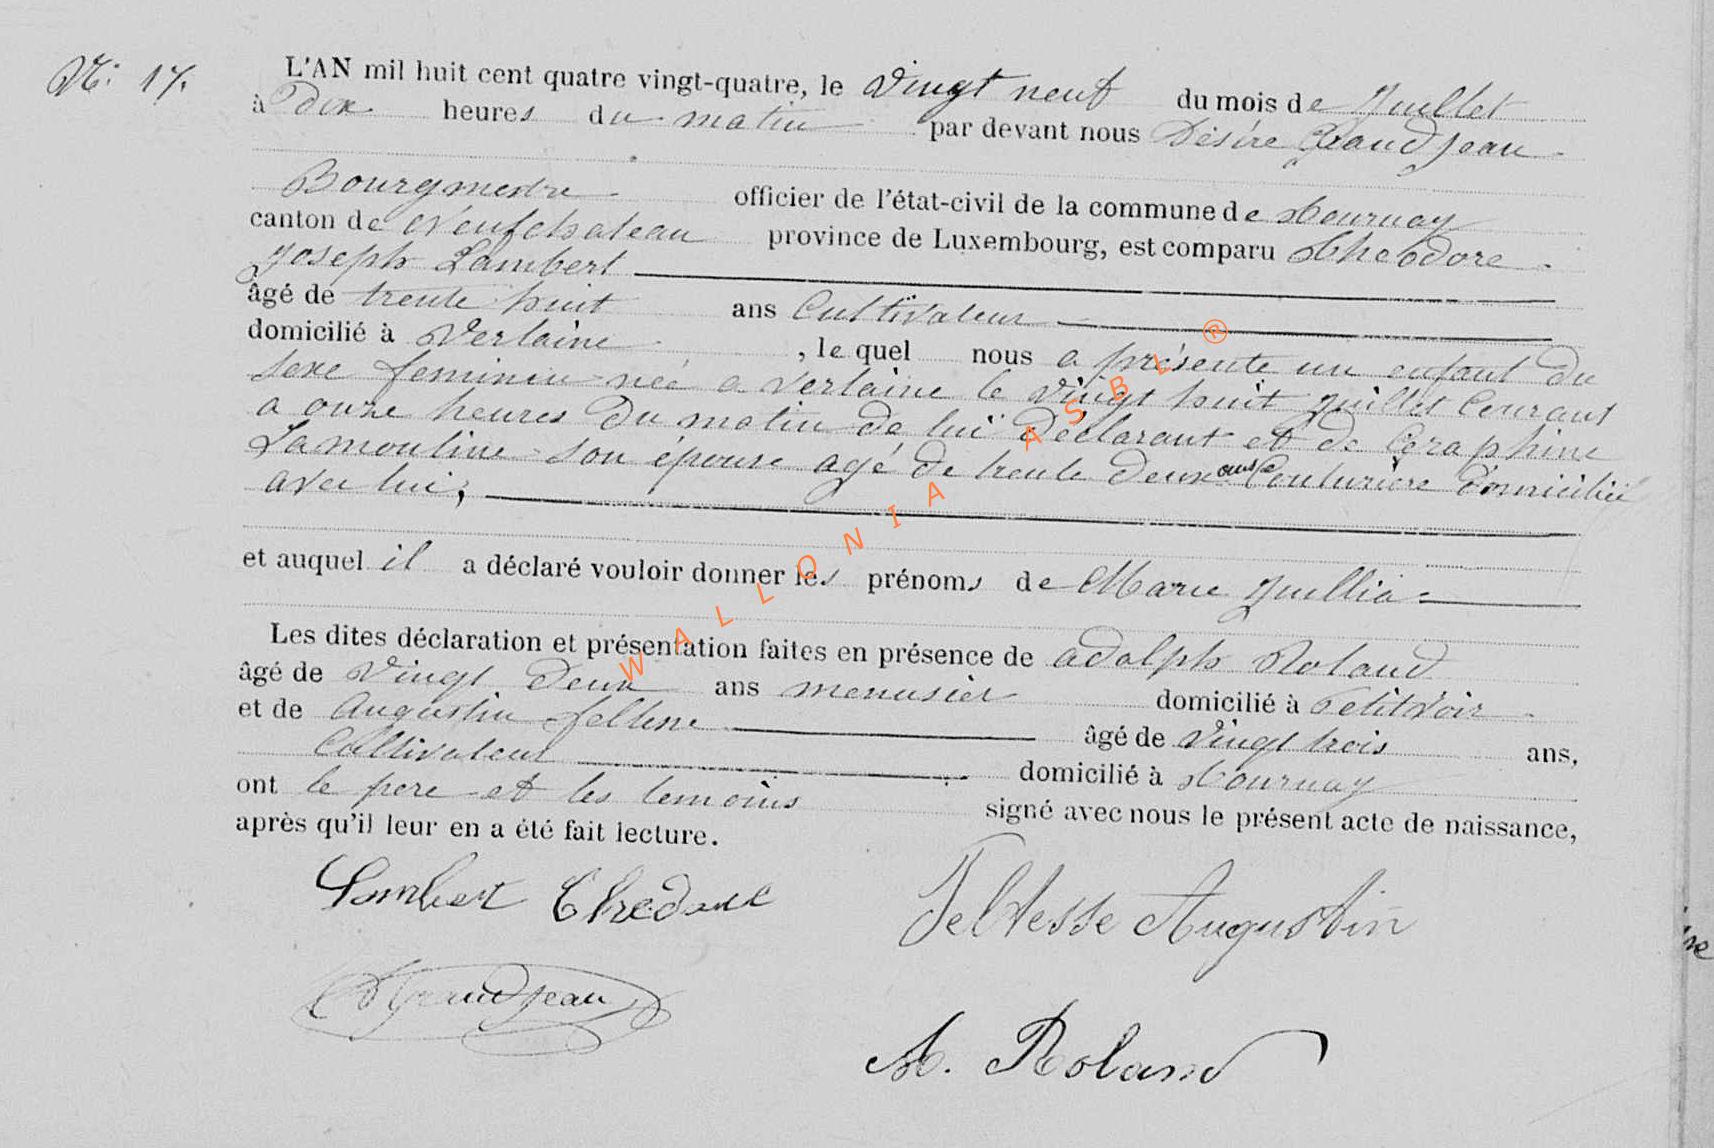 N: 17.
L'AN mil huit cent quatre vingt-quatre, le vingt neuf du mois de Juillet
à Dix heures du matin par devant nous Désire Grandjean
Bourgmestre officier de l'état-civil de la commune de Tournay
canton de Neufchateau province de Luxembourg, est comparu Théodore
Joseph Lambert
âgé de trente huit ans Cultivateur
domicilié à Verlaine, le quel nous a présente un enfant du
sexe feminin née a Verlaine le vingt huit Juillet Courant
a onze heures du matin de lui déclarant et de Ceraphine
Lamouline son épouse agé de trente deux ans Couturière domiciliée
avec lui;
et auquel il a déclaré vouloir donner les prénoms de Marie Juillia
Les dites déclaration et présentation faites en présence de Adolph Roland
âgé de vingt deux ans menusier domicilié à Petitvoir
et de Augustin feltesse âgé de vingt trois ans,
Cultivateur domicilié à Tournay
ont le pere et les temoins signé avec nous le présent acte de naissance,
après qu'il leur en a été fait lecture.
Lambert Théodore
Feltesse Augustin
D Grandjean
A. Roland
WALLONIA ASBL ®